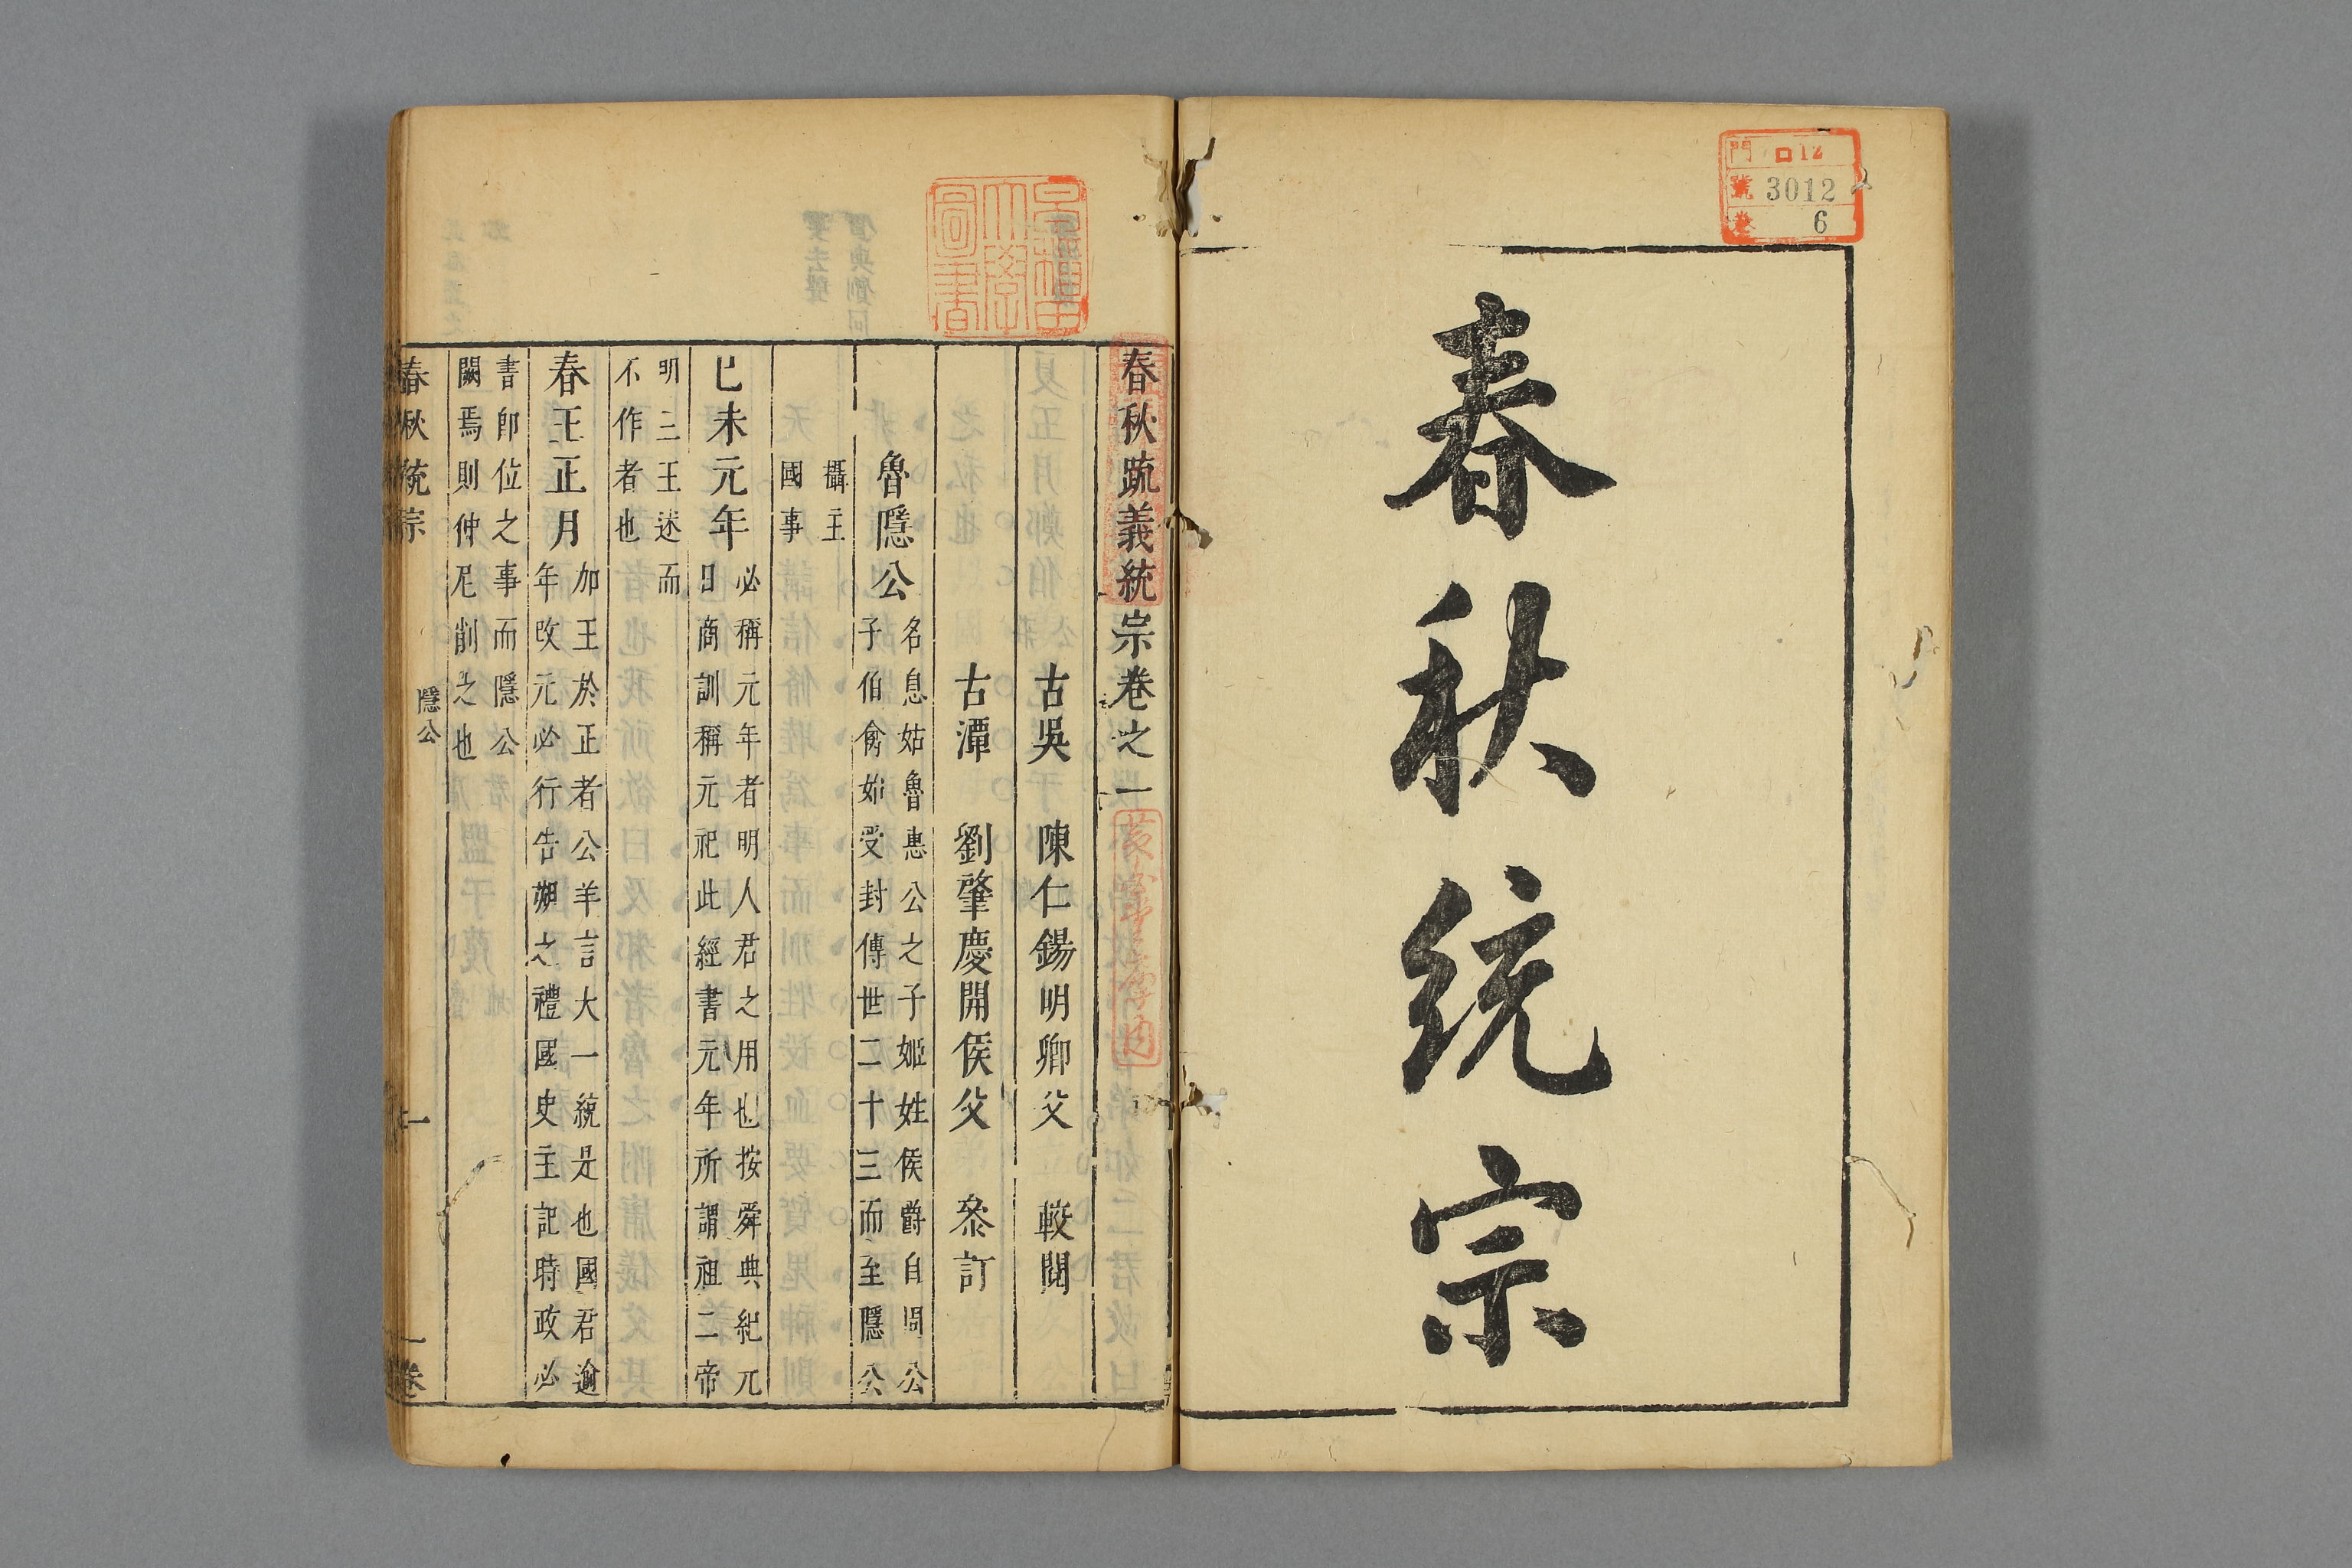 春秋統宗
門 ロ12
號 3012
卷 6
早稲田大學圖書
春秋疏義統宗卷之一
古吳 陳仁錫明卿父 較閱
古潭 劉肇慶開侯父 叅訂
魯隱公 名息姑魯惠公之子姬姓侯爵自周公
子伯禽始受封傳世二十三而至隱公
攝主
國事
己未元年 必稱元年者明人君之用也按舜典紀元
日商訓稱元祀此經書元年所謂祖二帝
明三王述而
不作者也
春王正月 加王於正者公羊言大一統是也國君逾
年改元必行告朔之禮國史主記時政必
書即位之事而隱公
闕焉則仲尼削之也
春秋統宗 隱公 一 一卷